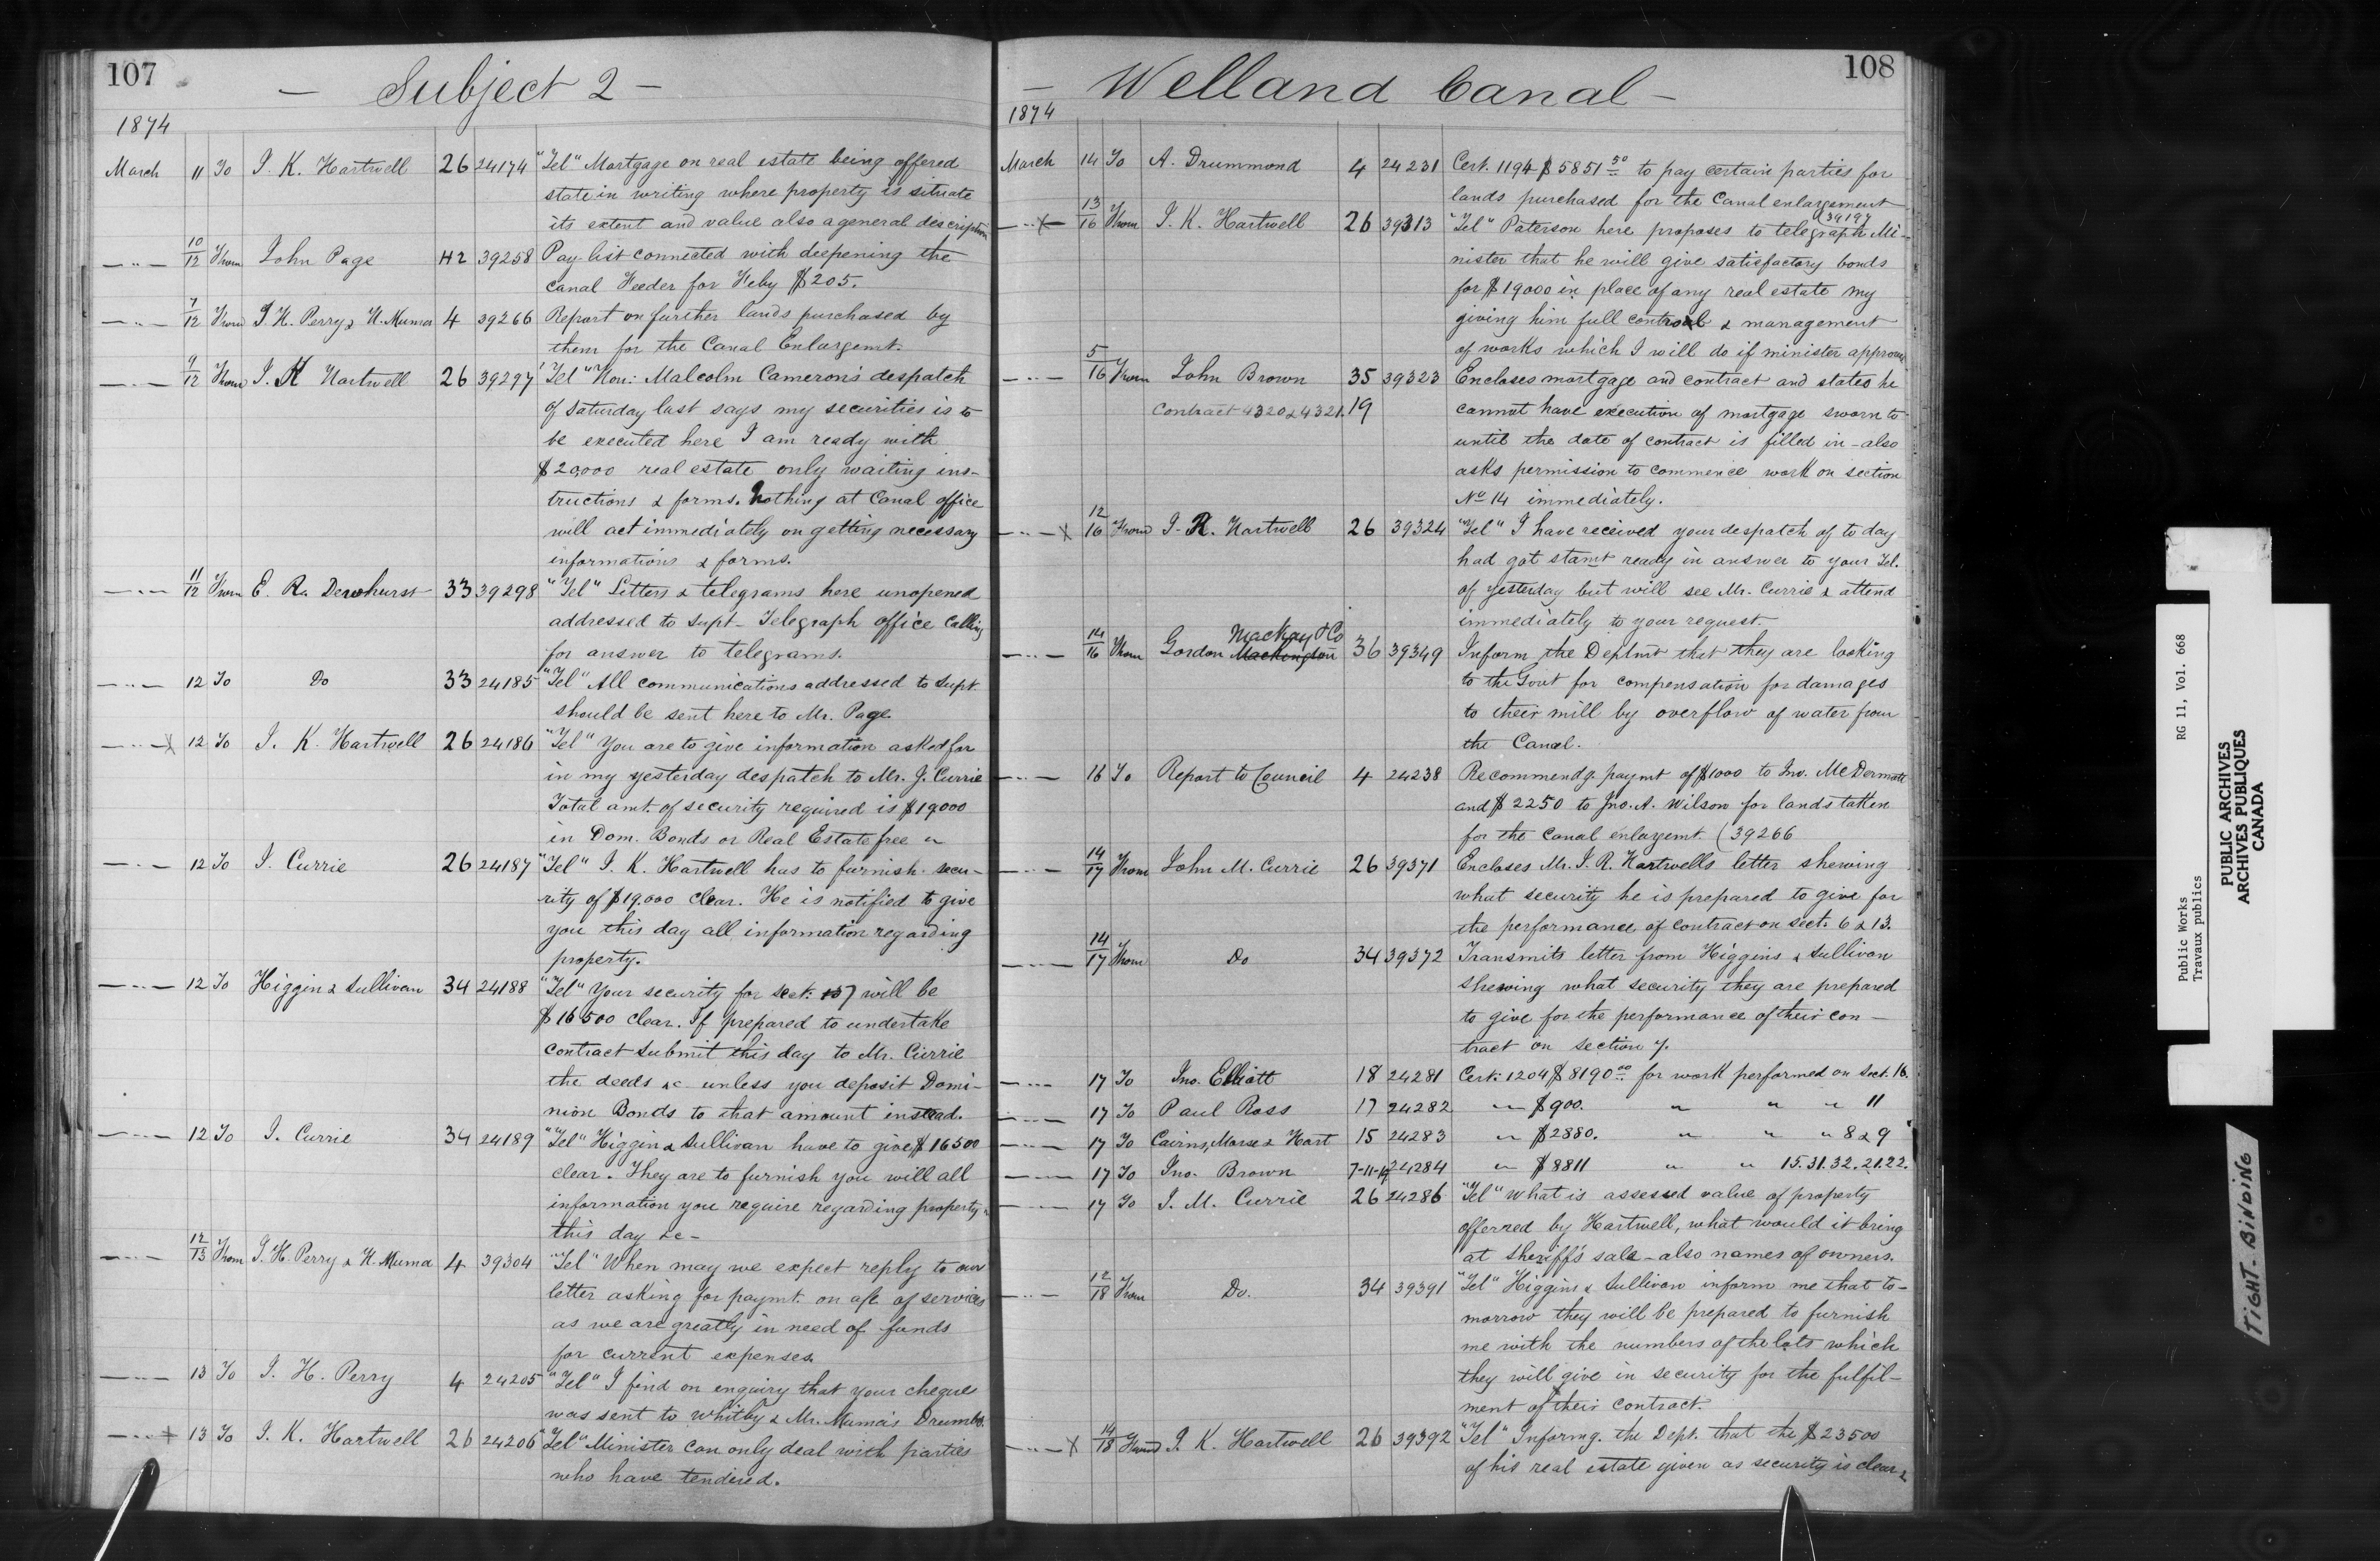 107
— Subject 2 —
1874
March 11 To J. K. Hartwell 26 24174 "Tel" Mortgage on real estate being offered
state in writing where property is situate
its extent and value also a general description
— " — 10/12 From John Page 42 39258 Pay-list connected with deepening the
canal Feeder for Feby $205.
— " — 7/12 From J. H. Perry & H. Muma 4 39266 Report on further lands purchased by
them for the Canal Enlargemt.
— " — 9/12 From J. K Hartwell 26 39297 "Tel" Hon: Malcolm Cameron's despatch
of Saturday last says my securities is to
be executed here I am ready with
$20,000 real estate only waiting ins-
tructions & forms. Nothing at Canal office
will act immediately on getting necessary
informations & forms.
— " — 11/12 From E. R. Dewhurst 33 39298 "Tel" Letters & telegrams here unopened
addressed to Supt - Telegraph office calling
for answer to telegrams.
— " — 12 To Do 33 24185 "Tel" All communications addressed to Supt.
should be sent here to Mr. Page.
— " — x 12 To J. K. Hartwell 26 24186 "Tel" You are to give information asked for
in my yesterday despatch to Mr. J. Currie
Total amt. of security required is $19000
in Dom. Bonds or Real Estate free "
— " — 12 To J. Currie 26 24187 "Tel" J. K. Hartwell has to furnish secu-
rity of $19.000 clear. He is notified to give
you this day all information regarding
property.
— " — 12 To Higgin & Sullivan 34 24188 "Tel" Your security for Sect: 7 will be
$16500 clear. If prepared to undertake
contract submit this day to Mr. Currie
the deeds &c unless you deposit Domi-
nion Bonds to that amount instead.
— " — 12 To J. Currie 34 24189 "Tel" Higgin & Sullivan have to give $16500
clear. They are to furnish you will all
information you require regarding property
this day &c -
— " — 12/13 From J. H. Perry & H. Muma 4 39304 "Tel" When may we expect reply to our
letter asking for paymt. on a/c of services
as we are greatly in need of funds
for current expenses.
— " — 13 To J. H. Perry 4 24205 "Tel" I find on enquiry that your cheque
was sent to Whitby & Mr. Muma's Drumbo.
— " — x 13 To J. K. Hartwell 26 24206 "Tel" Minister can only deal with parties
who have tendered.
108
— Welland Canal —
1874
March 14 To A. Drummond 4 24231 Cert. 1194 $5851 50 to pay certain parties for
lands purchased for the Canal enlargement
— " — x 13/16 From J. K. Hartwell 26 39313 "Tel" Paterson here proposes to telegraph Mi- (39197
nister that he will give satisfactory bonds
for $19000 in place of any real estate my
giving him full control & management
of works which I will do if minister approves
— " — 5/16 From John Brown 35 39323 Encloses mortgage and contract and states he
Contract 4320 & 4321. 19 cannot have execution of mortgage sworn to
until the date of contract is filled in - also
asks permission to commence work on section
No 14 immediately.
— " — x 12/16 From J. K. Hartwell 26 39324 "Tel" I have received your despatch of to day
had got stamt ready in answer to your Tel.
of yesterday but will see Mr. Currie & attend
immediately to your request.
— " — 14/16 From Gordon Mackay & Co 36 39349 Inform the Deptmt that they are looking
to the Govt for compensation for damages
to their mill by overflow of water from
the Canal.
— " — 16 To Report to Council 4 24238 Recommendg. paymt of $1000 to Jno. McDermott
and $2250 to Jno. A. Wilson for lands taken
for the canal enlargemt. (39266
— " — 14/17 From John M. Currie 26 39371 Encloses Mr. J. K. Hartwells letter shewing
what security he is prepared to give for
the performance of contract on Sect. 6 & 13.
— " — 14/17 From Do 34 39372 Transmits letter from Higgins & Sullivan
shewing what security they are prepared
to give for the performance of their con-
tract on section 7.
— " — 17 To Jno. Elliott 18 24281 Cert: 1204 $8190 00 for work performed on Sect. 16.
— " — 17 To Paul Ross 17 24282 " $900. " " " 11
— " — 17 To Cairns, Morse & Hart 15 24283 " $2880. " " " 8 & 9
— " — 17 To Jno. Brown 7-11-19 24284 " $8811 " " 15.31.32.21.22.
— " — 17 To J. M. Currie 26 24286 "Tel" What is assessed value of property
offerred by Hartwell, what would it bring
at sheriff's sale - also names of owners.
— " — 12/18 From Do. 34 39391 "Tel" Higgins & Sullivan inform me that to-
morrow they will be prepared to furnish
me with the numbers of the lots which
they will give in security for the fulfil-
ment of their contract.
— " — x 14/18 From J. K. Hartwell 26 39392 "Tel" Informg. the Dept. that the $23500
of his real estate given as security is clear &
Public Works RG 11, Vol. 668
Travaux publics
PUBLIC ARCHIVES
ARCHIVES PUBLIQUES
CANADA
TIGHT-BINDING